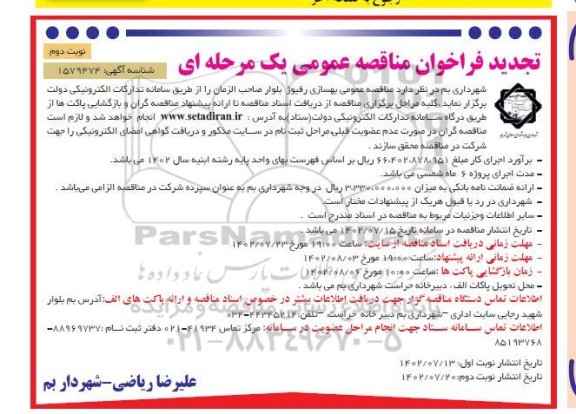 نوبت دوم
تجدید فراخوان مناقصه عمومی یک مرحله ای
شناسه آگهی: ۱۵۷۹۴۷۴
شهرداری بم در نظر دارد مناقصه عمومی بهسازی رفیوژ بلوار صاحب الزمان را از طریق سامانه تدارکات الکترونیکی دولت
برگزار نماید .کلیه مراحل برگزاری مناقصه از دریافت اسناد مناقصه تا ارائه پیشنهاد مناقصه گران و بازگشایی پاکت ها از
طریق درگاه سامانه تدارکات الکترونیکی دولت(ستاد)به آدرس : www.setadiran.ir انجام خواهد شد و لازم است
مناقصه گران در صورت عدم عضویت قبلی،مراحل ثبت نام در سایت مذکور و دریافت گواهی امضای الکترونیکی را جهت
شرکت در مناقصه محقق سازند .
- برآورد اجرای کار مبلغ ۶۶،۴۰۲،۸۷۸،۹۵۱ ریال بر اساس فهرست بهای واحد پایه رشته ابنیه سال ۱۴۰۲ می باشد.
- مدت اجرای پروژه ۶ ماه شمسی می باشد.
- ارائه ضمانت نامه بانکی به میزان ۳،۳۳۰،۰۰۰،۰۰۰ ریال در وجه شهرداری بم به عنوان سپرده شرکت در مناقصه الزامی می‌باشد .
- شهرداری در رد یا قبول هریک از پیشنهادات مختار است.
- سایر اطلاعات وجزئیات مربوط به مناقصه در اسناد مندرج است .
- تاریخ انتشار مناقصه در سامانه تاریخ ۱۴۰۲/۰۷/۱۵ می باشد .
- مهلت زمانی دریافت اسناد مناقصه از سایت: ساعت ۱۹:۰۰ مورخ ۱۴۰۲/۰۷/۲۳
- مهلت زمانی ارائه پیشنهاد:ساعت ۱۹:۰۰ مورخ ۱۴۰۲/۰۸/۰۳
- زمان بازگشایی پاکت ها :ساعت ۱۰:۰۰ مورخ ۱۴۰۲/۰۸/۰۶
- محل تحویل پاکات الف، دبیرخانه حراست شهرداری بم می باشد .
اطلاعات تماس دستگاه مناقصه گزار جهت دریافت اطلاعات بیشتر در خصوص اسناد مناقصه و ارائه پاکت های الف:آدرس بم بلوار
شهید رجایی سایت اداری -شهرداری بم دبیر خانه حراست -تلفن:۴۴۳۴۵۲۱۴-۰۳۴
اطلاعات تماس سامانه ستاد جهت انجام مراحل عضویت در سامانه: مرکز تماس ۴۱۹۳۴-۰۲۱ دفتر ثبت نام :۸۸۹۶۹۷۳۷-
۸۵۱۹۳۷۶۸
تاریخ انتشار نوبت اول: ۱۴۰۲/۰۷/۱۳
تاریخ انتشار نوبت دوم:۱۴۰۲/۰۷/۲۰
علیرضا ریاضی-شهردار بم
ParsNamadData
۰۲۱-۸۸۳۴۹۶۷۰-۵